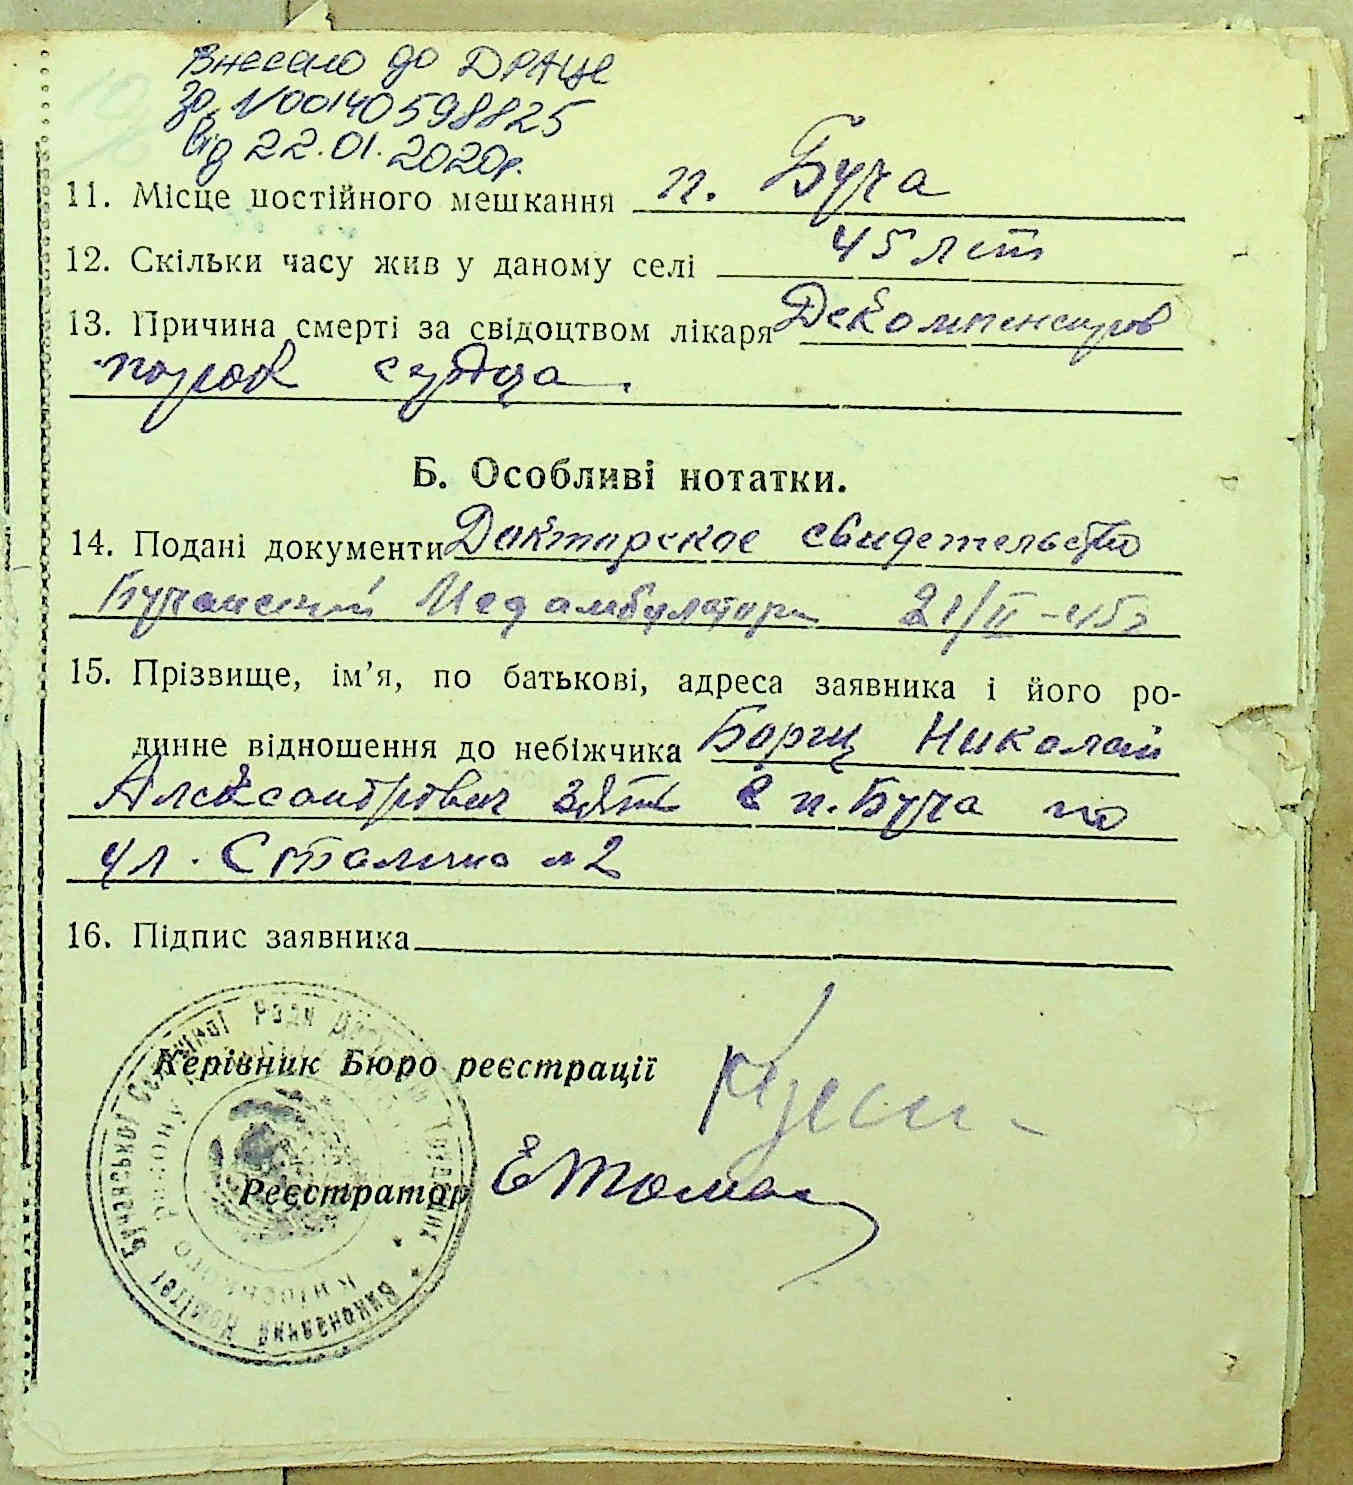 Внесено до ДРАЦС
за №00140598825
від 22.01.2020р.
11. Місце постійного мешкання п. Буча
12. Скільки часу жив у даному селі 45 лет
13. Причина смерті за свідоцтвом лікаря Декомпенсиров
порок сердца.
Б. Особливі нотатки.
14. Подані документи Докторское свидетельство
Бучанский Медамбулатори 21/II-45г
15. Прізвище, ім'я, по батькові, адреса заявника і його ро-
динне відношення до небіжчика Борщ Николай
Александрович зять с п. Буча по
ул. Сталина №2
16. Підпис заявника
Керівник Бюро реєстрації
Реєстратор
Виконавчий Комітет Бучанської Селищної Ради Депутатів Трудящих
Київського району